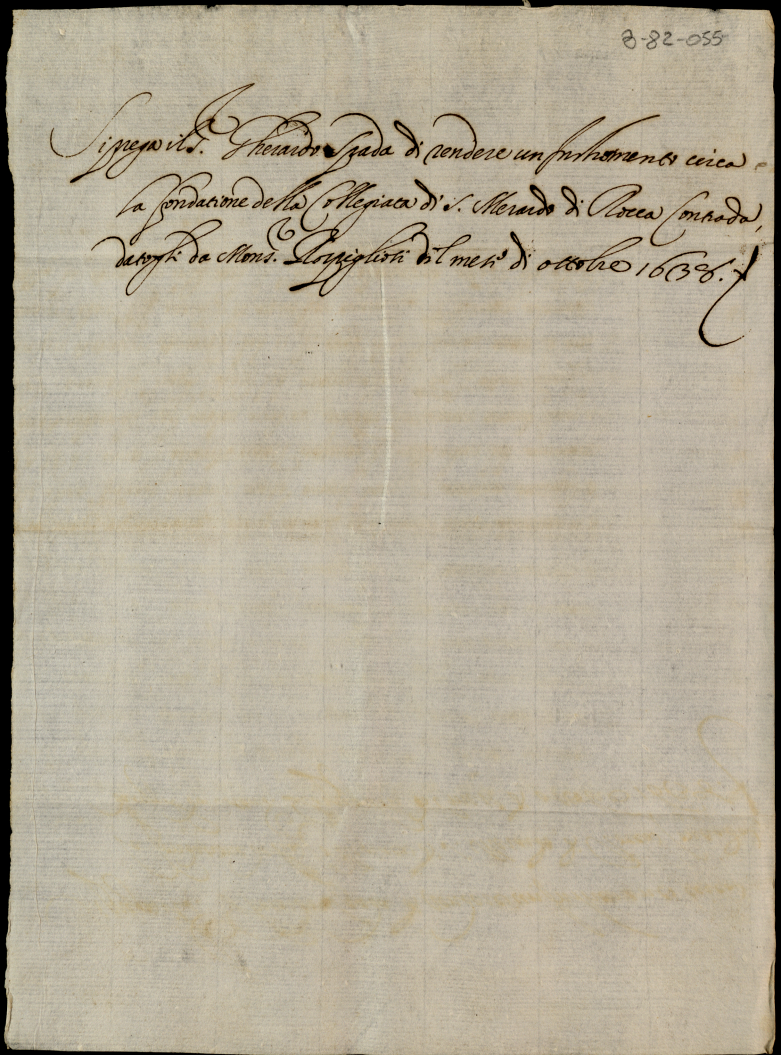 3-82-055
Si prega il S.r Gherardo Spada di rendere un Instromento circa
la fondatione della Collegiata di S. Merardo di Rocca Contrada,
datogli da Mons.r Rospigliosi il mese di ottobre 1638.